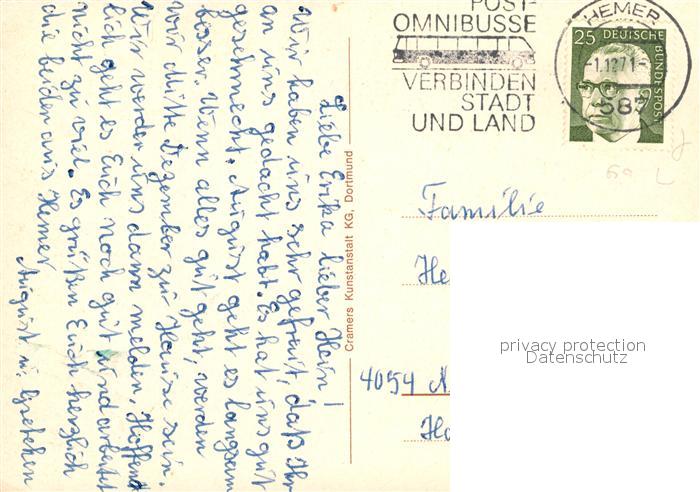 Liebe Erika lieber Hein!
Wir haben uns sehr gefreut, daß Ihr
an uns gedacht habt. Es hat uns gut
geschmeckt. August geht es langsam
besser. Wenn alles gut geht, werden
wir Mitte Dezember zu Hause sein.
Wir werden uns dann melden, Hoffent
lich geht es Euch noch gut und arbeitet
nicht zu viel. Es grüßen Euch herzlich
die beiden aus Hemer
August u. Gretchen
Cramers Kunstanstalt KG, Dortmund
POST-
OMNIBUSSE
VERBINDEN
STADT
UND LAND
HEMER
-1.12.71-
587
25 DEUTSCHE
BUNDESPOST
Familie
He
4054 N
Ho
privacy protection
Datenschutz